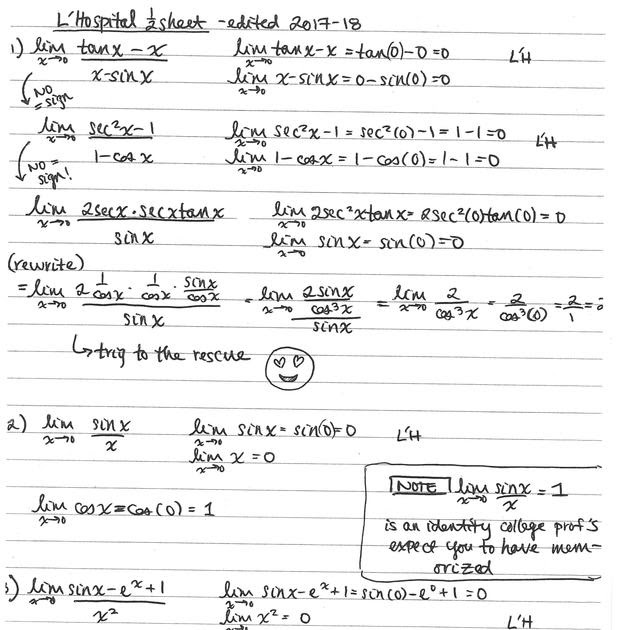 L'Hospital 1/2 sheet - edited 2017-18
1) lim x→0 (tanx - x)/(x - sinx)    lim x→0 tanx - x = tan(0) - 0 = 0    L'H
lim x→0 x - sinx = 0 - sin(0) = 0
NO = sign
lim x→0 (sec²x - 1)/(1 - cosx)    lim x→0 sec²x - 1 = sec²(0) - 1 = 1 - 1 = 0    L'H
lim x→0 1 - cosx = 1 - cos(0) = 1 - 1 = 0
NO = sign!
lim x→0 (2secx · secxtanx)/(sinx)    lim x→0 2sec²xtanx = 2sec²(0)tan(0) = 0
lim x→0 sinx = sin(0) = 0
(rewrite)
= lim x→0 (2 1/cosx · 1/cosx · sinx/cosx)/(sinx) = lim x→0 (2sinx/cos³x)/(sinx) = lim x→0 2/cos³x = 2/cos³(0) = 2/1 =
↳ trig to the rescue
2) lim x→0 sinx/x    lim x→0 sinx = sin(0) = 0    L'H
lim x→0 x = 0
lim x→0 cosx = cos(0) = 1
NOTE lim x→0 sinx/x = 1
is an identity college prof's
expect you to have mem-
orized
) lim x→0 (sinx - eˣ + 1)/x²    lim x→0 sinx - eˣ + 1 = sin(0) - e⁰ + 1 = 0
lim x² = 0    L'H